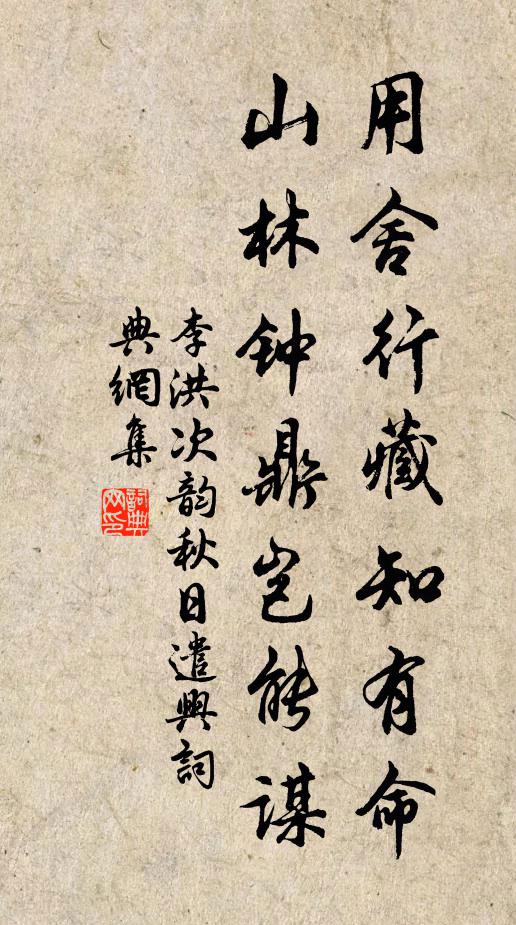 用舍行藏知有命
山林钟鼎岂能谋
李洪次韵秋日遣興詞
典網集
詞典网印